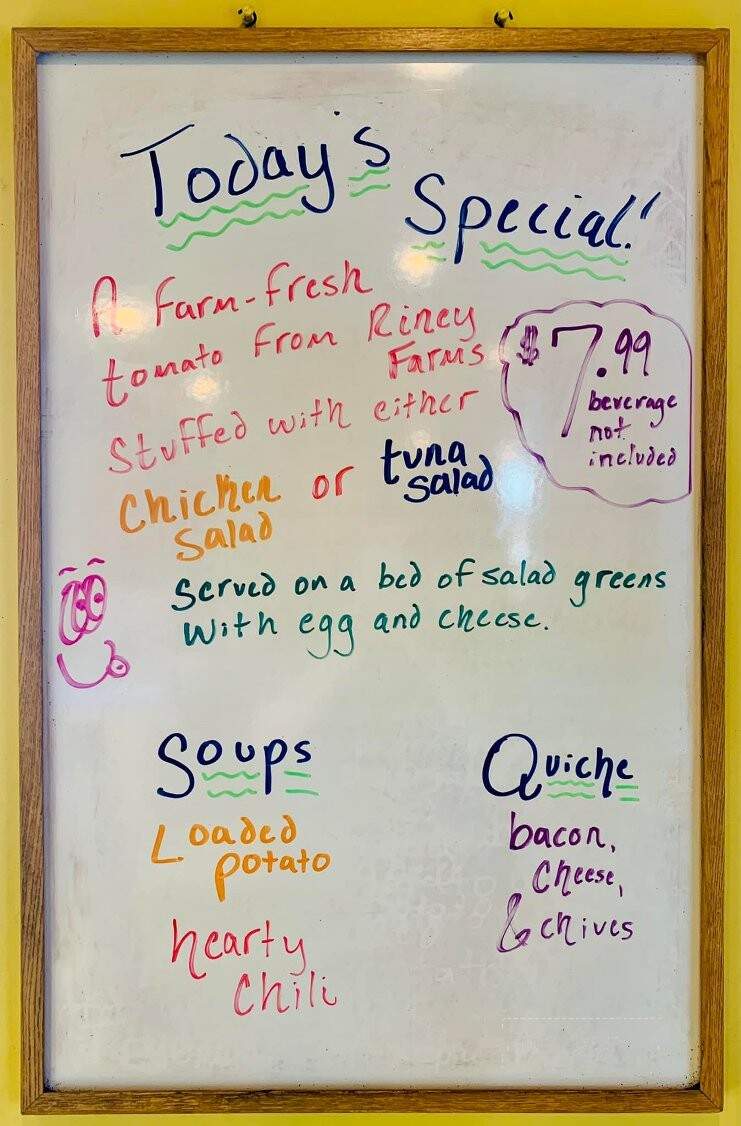 Today's
Special!
A farm-fresh
tomato from Riney
Farms
stuffed with either
chicken or tuna
salad salad
$7.99
beverage
not
included
served on a bed of salad greens
with egg and cheese.
Soups
Loaded
potato
hearty
chili
Quiche
bacon,
cheese,
& chives